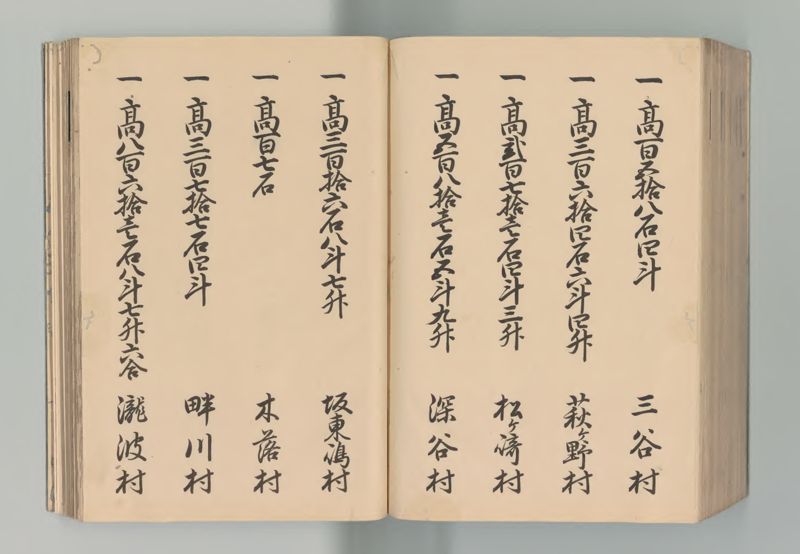 一 高百五拾八石四斗 三谷村
一 高三百六拾四石六斗四升 萩ヶ野村
一 高弐百七拾壱石四斗三升 松ヶ崎村
一 高五百八拾壱石五斗九升 深谷村
一 高三百拾六石八斗七升 坂東嶋村
一 高百七石 木落村
一 高三百七拾七石四斗 畔川村
一 高八百六拾壱石八斗七升六合 瀧波村